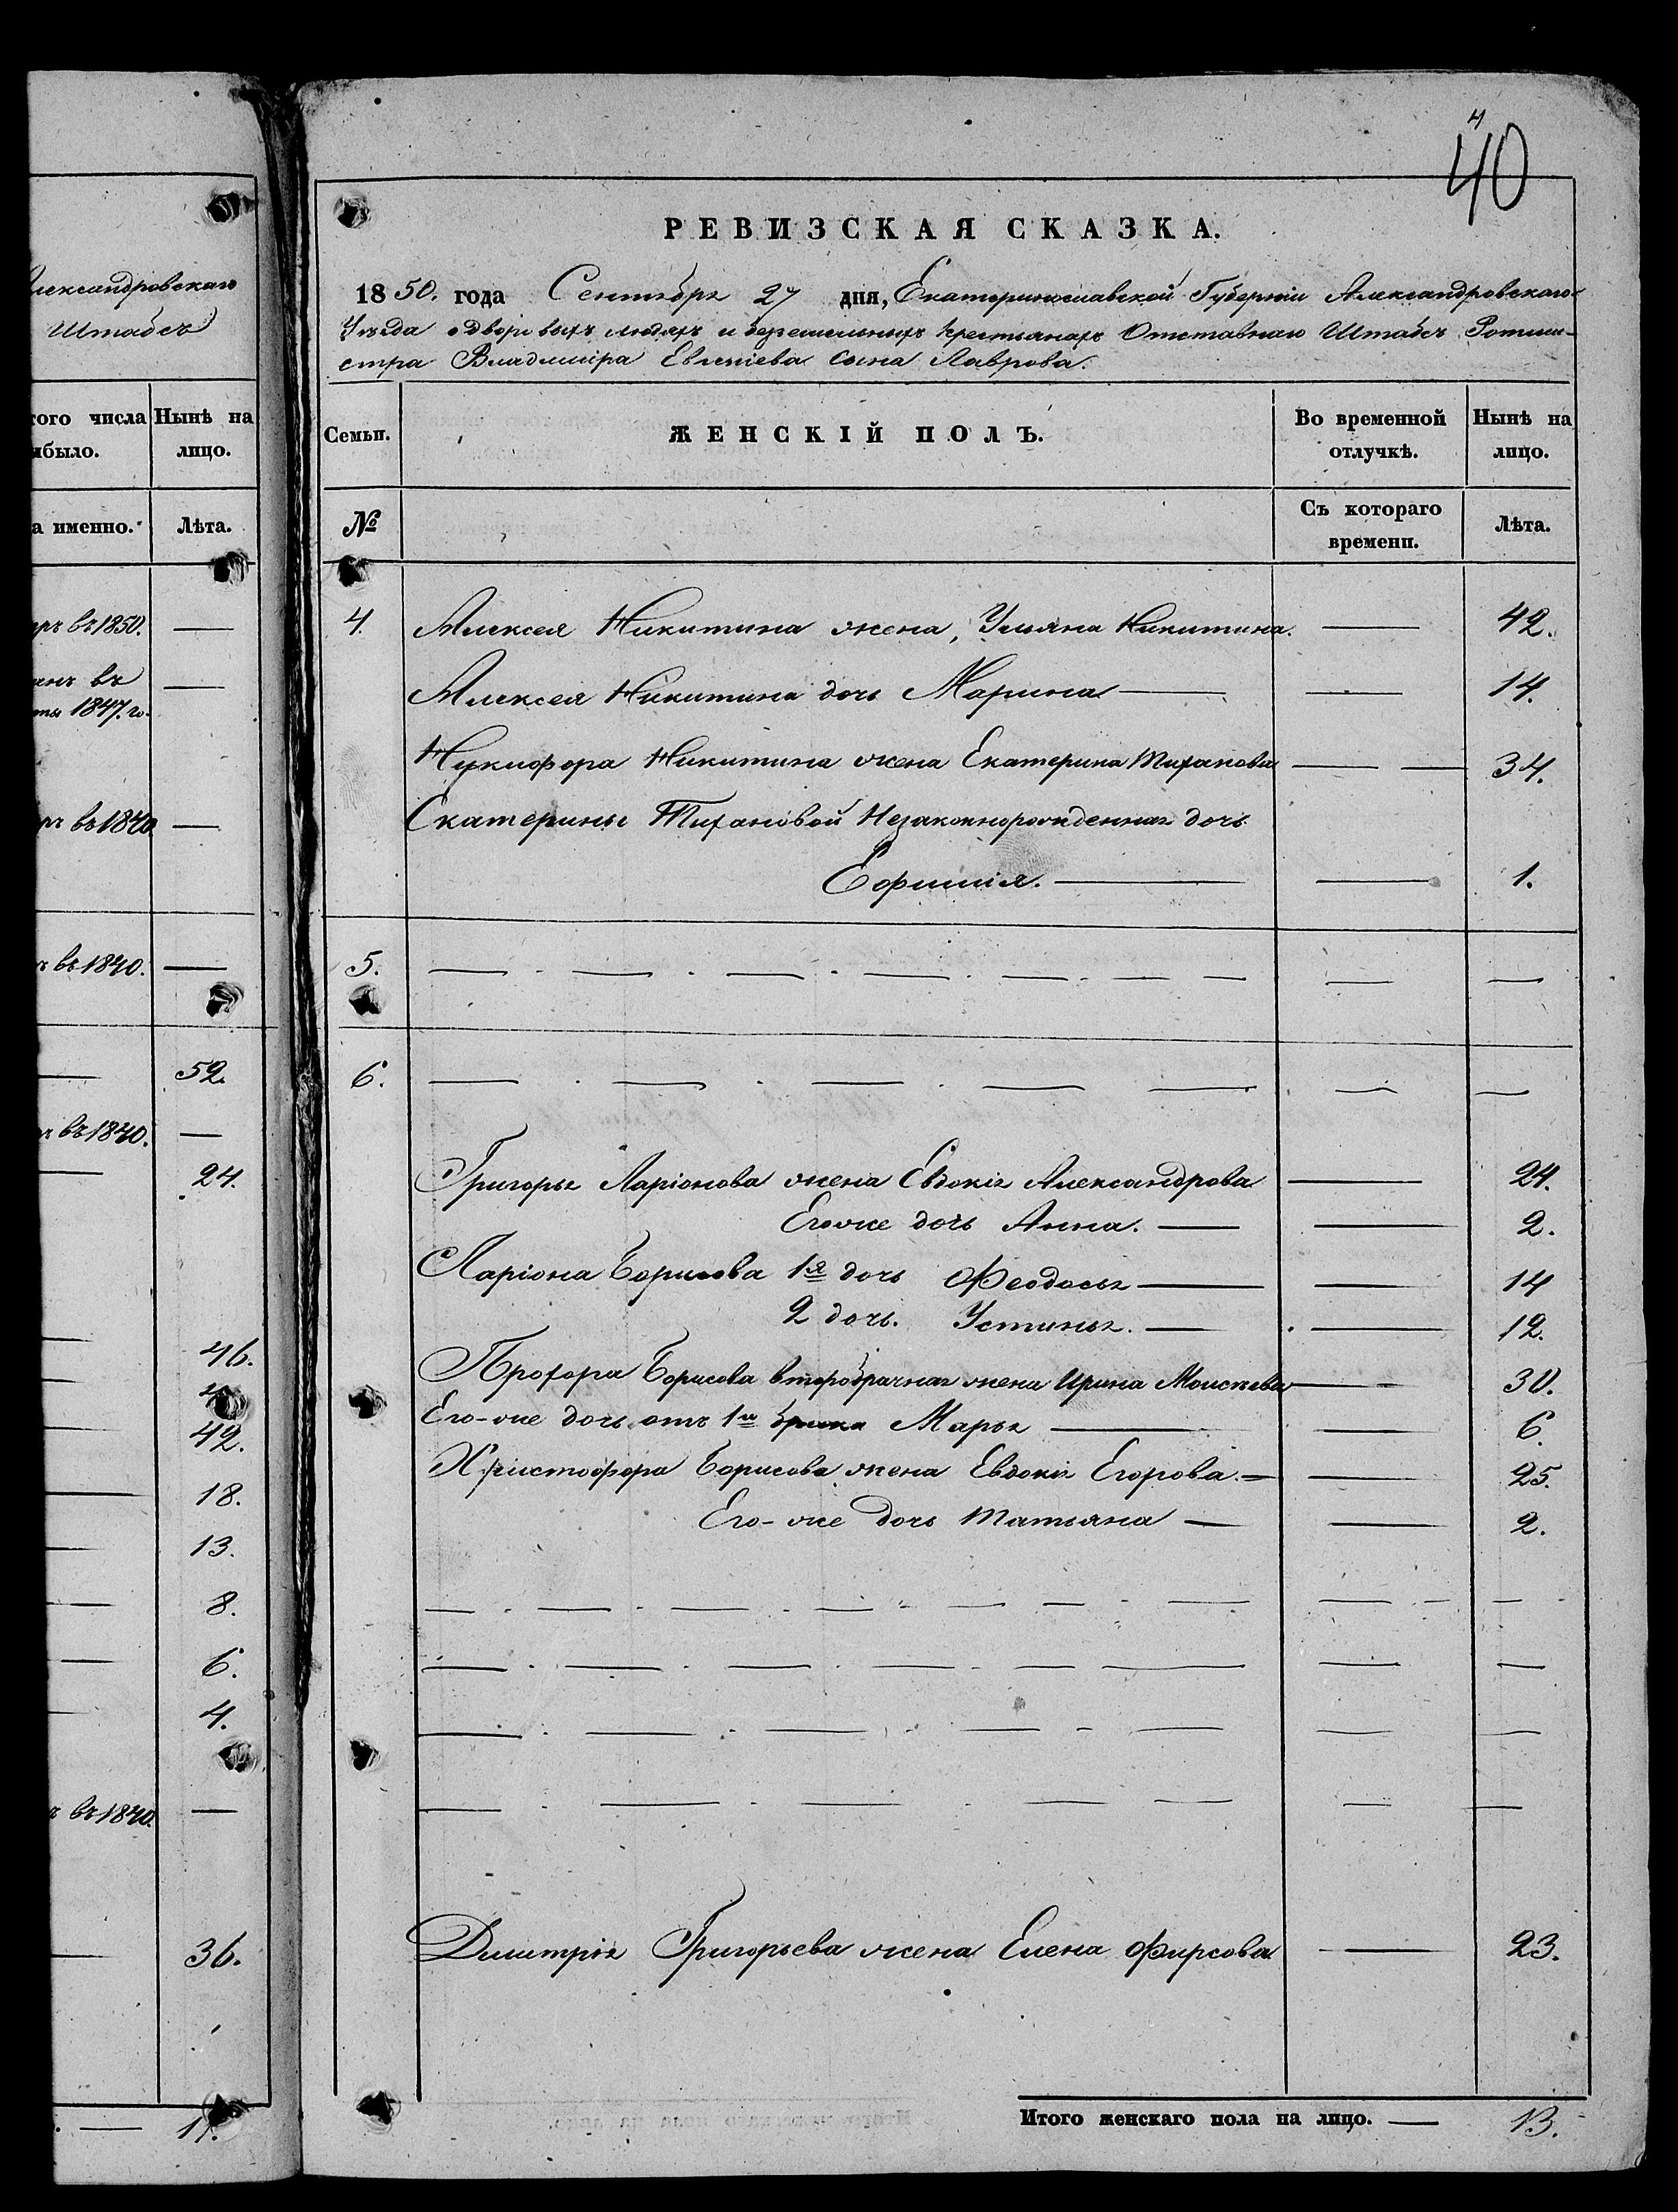 4
40
РЕВИЗСКАЯ СКАЗКА.
1850. года Сентября 27 дня, Екатеринославской Губерніи Александровскаго
Уѣзда о дворовыхъ людяхъ и безземельныхъ крестьянахъ Отставнаго Штабсъ Ротми-
стра Владиміра Евгеніева сына Лаврова.
Семьи.
ЖЕНСКІЙ ПОЛЪ.
Во временной отлучкѣ.
Нынѣ на лицо.
№
Съ котораго времени.
Лѣта.
4. Алексея Никитина жена, Ульяна Никитина. — 42.
Алексея Никитина дочь Марина — — 14.
Никифора Никитина жена Екатерина Тиханова — — 34.
Екатерины Тихановой Незаконнорожденная дочь
Ефимія. — — 1.
5. — — —
6. — — —
Григорья Ларіонова жена Евдокія Александрова — 24.
Его же дочь Анна. — — 2.
Ларіона Борисова 1я дочь Феодосья — — 14
2 дочь. Устинья. — — 12.
Прохора Борисова второбрачная жена Ирина Моисѣева — 30.
Его-же дочь отъ 1го брака Марья — — 6.
Христофора Борисова жена Евдокія Егорова. — — 25.
Его-же дочь Татьяна — — 2.
Димитрія Григорьева жена Елена Фирсова — 23.
Итого женскаго пола на лицо. — 13.
Александровскаго
Штабсъ
того числа
было.
Нынѣ на
лицо.
а именно.
Лѣта.
въ 1850. —
въ —
1847. го.
въ 1840 —
въ 1840. —
— 52.
въ 1840. —
— 24.
— 46.
— 42.
— 18.
— 13.
— 8.
— 6.
— 4.
въ 1840. —
— 36.